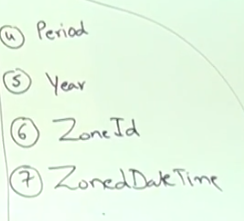 ④ Period
⑤ Year
⑥ ZoneId
⑦ ZonedDateTime